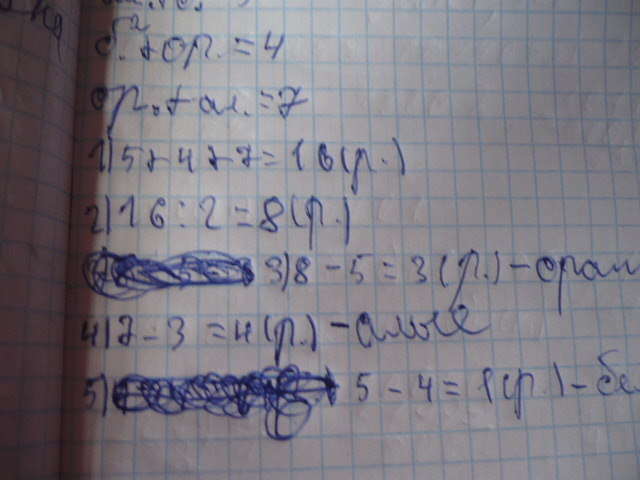 б.+ор.=4
ор.+ал.=7
1)5+4+7=16(р.)
2)16:2=8(р.)
3)8-5=3(р.)-оран
4)7-3=4(р.)-алые
5) 5-4=1(р.)-бе